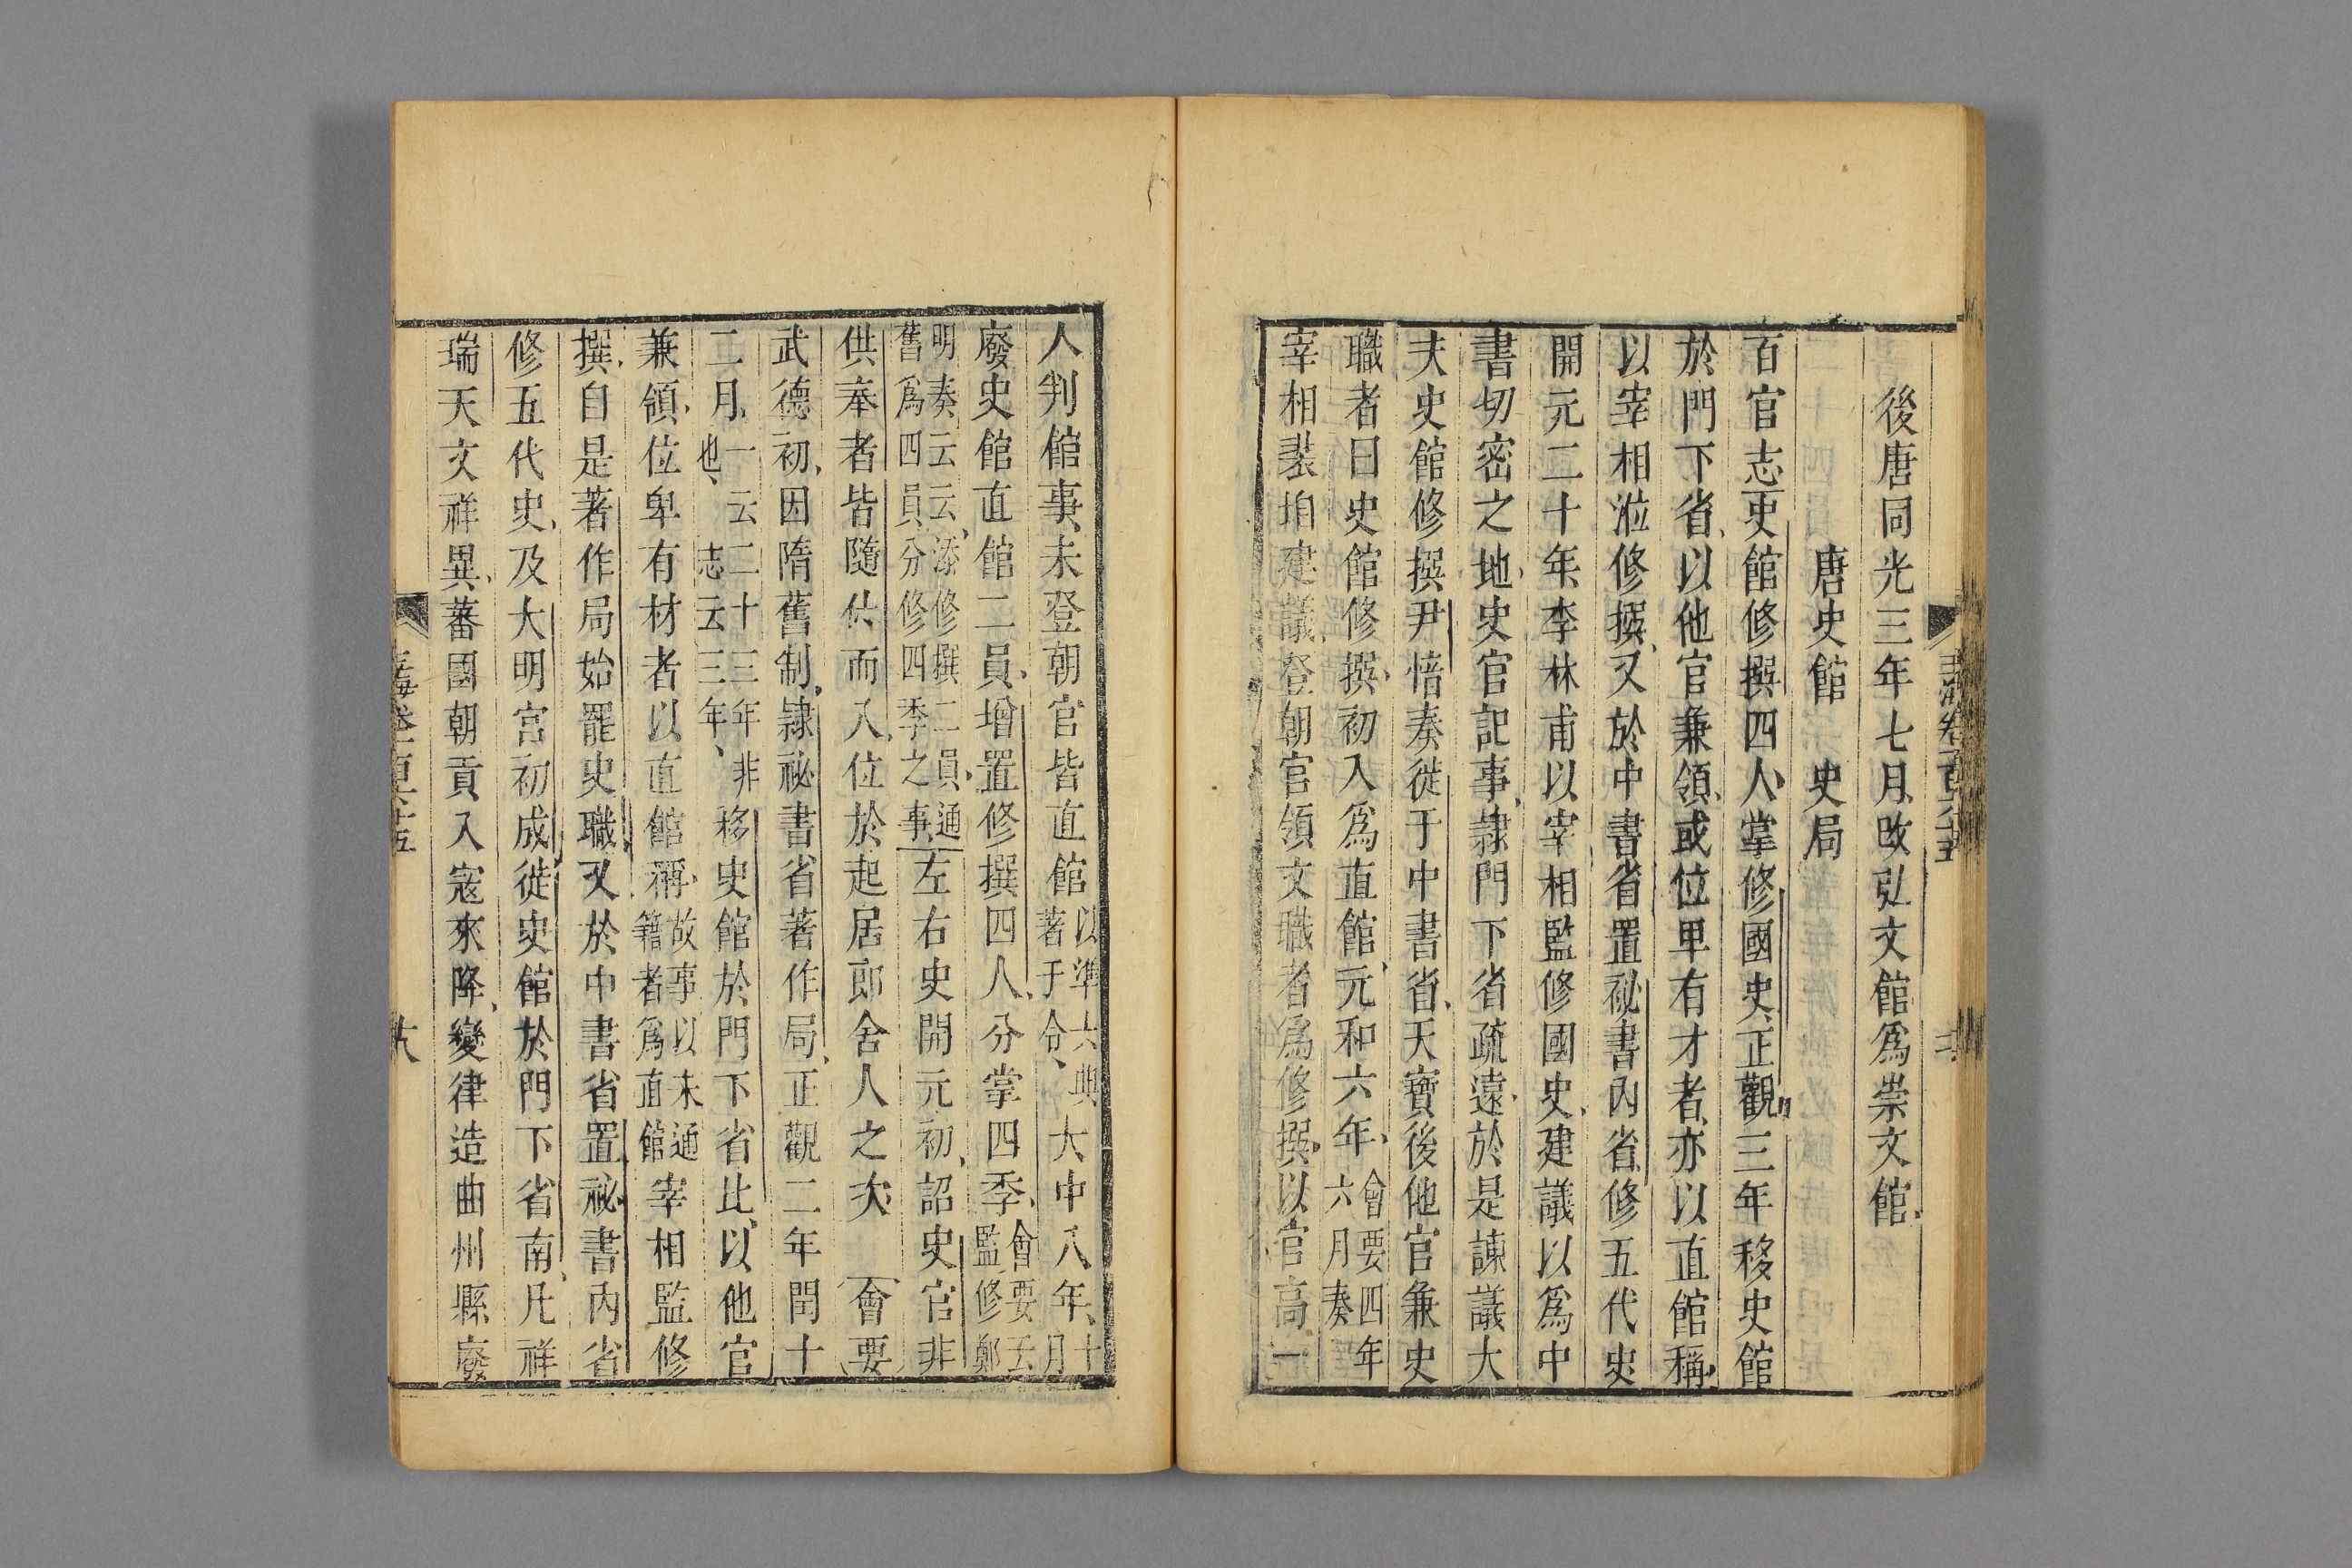 後唐同光三年七月改弘文館爲崇文館
唐史館 史局
百官志史館修撰四人掌修國史正觀三年移史館
於門下省以他官兼領或位卑有才者亦以直館稱
以宰相涖修撰又於中書省置祕書內省修五代史
開元二十年李林甫以宰相監修國史建議以爲中
書切密之地史官記事隷門下省疏遠於是諫議大
夫史館修撰尹愔奏徙于中書省天寶後他官兼史
職者曰史館修撰初入爲直館元和六年會要四年六月奏
宰相裴垍建議登朝官領文職者爲修撰以官高一
人判館事未登朝官皆直館以準六典著于令大中八年十月
廢史館直館二員增置修撰四人分掌四季會要云監修鄭
明奏云云添修撰二員通舊爲四員分修四季之事左右史開元初詔史官非
供奉者皆隨仗而入位於起居郎舍人之次 會要
武德初因隋舊制隷祕書省著作局正觀二年閏十
二月一云二十三年非也志云三年移史館於門下省北以他官
兼領位卑有材者以直館稱故事以未通籍者爲直館宰相監修
撰自是著作局始罷史職又於中書省置祕書內省
修五代史及大明宮初成徙史館於門下省南凡祥
瑞天文祥異蕃國朝貢入寇來降變律造曲州縣廢